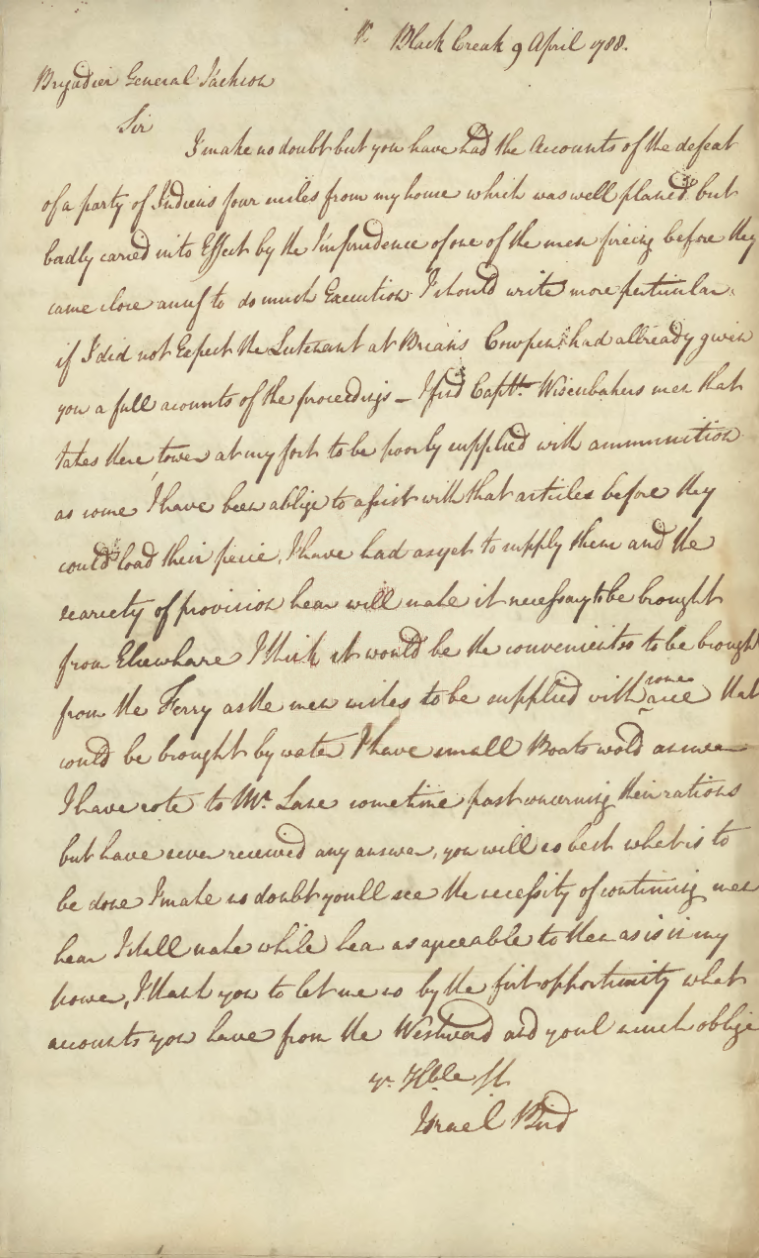 Black Creak 9 April 1788.
Brigadier General Jackson
Sir
I make no doubt but you have had the Accounts of the defeat
of a party of Indiens four miles from my house which was well planed but
badly caried into Effect by the Imprudence of one of the men fireing before they
came close anuf to do much Execution I should write more perticular
if I did not Expect the Lutenant at Brians Cowpens had allready given
you a full acounts of the proceedings – I find Captn. Wisenbakers men that
takes there tower at my fort to be poorly supplied with ammunition
as some I have been ablige to assist with that articles before they
could load their peice, I have had as yet to supply them and the
scarcity of provision hear will make it necessary to be brought
from Elsewhare I think it would be the convenients to be brought
from the Ferry as the men wishes to be supplied with some rice that
could be brought by water I have small Boats wold answer
I have rote to Mr Lane sometime past concerning their rations
but have never received any answer, you will no best what is to
be done I make no doubt youll see the necessity of continuing men
hear I shall make while hear as agreeable to them as is in my
power, I thank you to let me no by the first opportunity what
accounts you have from the Westward and youl much oblige
yr. Hble St.
Israel Bird